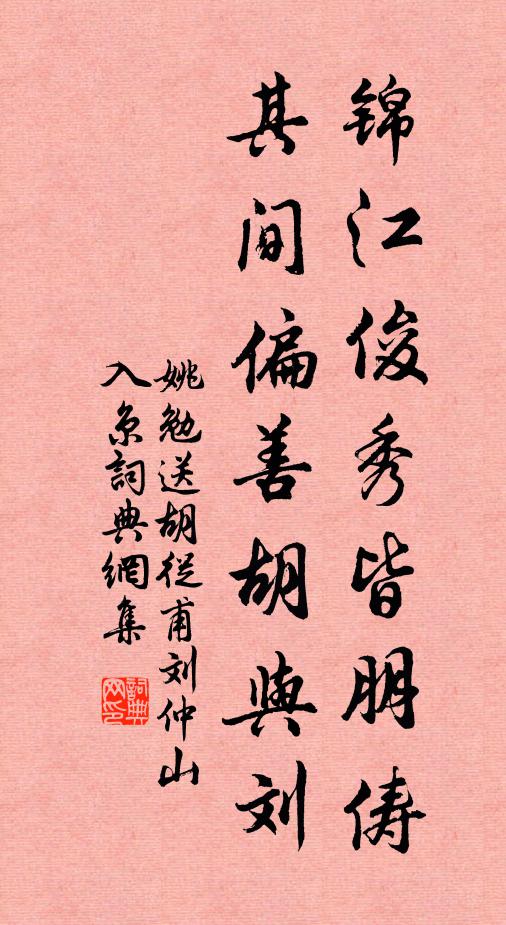 锦江俊秀皆朋俦
其间偏善胡与刘
姚勉送胡從甫刘仲山
入京詞典網集
詞典網印